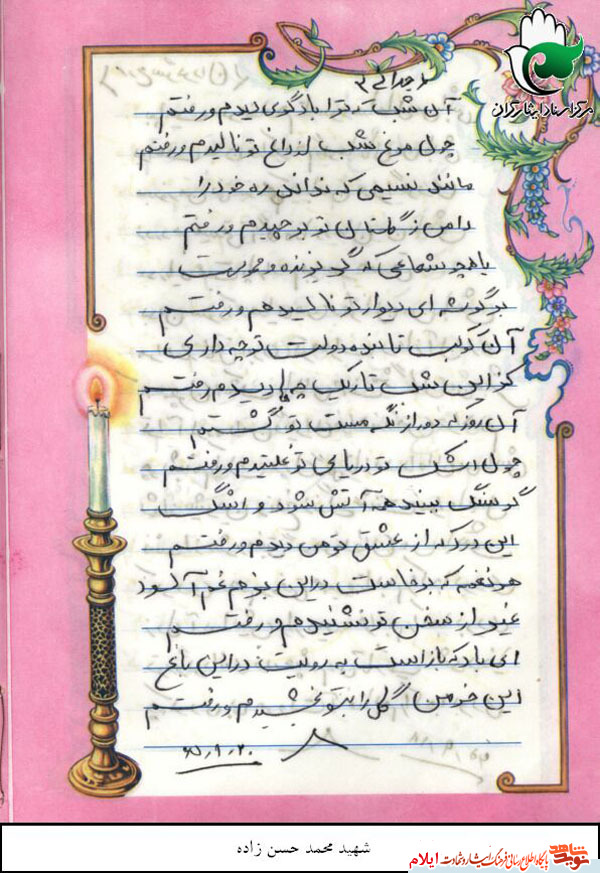 مرکز اسناد ایثارگران
« جدائی »
آن شب که ترا با دگری دیدم و رفتم
چون مرغ شب از داغ تو نالیدم و رفتم
مانند نسیمی که نداند ره خود را
دامن ز گلستان تو برچیدم و رفتم
یا همچو شعاعی که گریزنده و
بر گوشه ای دیوار تو نالیدم و رفتم
آن کوکب تابنده دولت تو چه داری
کز این شب تاریک چه ها دیدم رفتم
آن روز که دور از نگه مست تو گشتم
چون اشک تو دریای تو غلتیدم و رفتم
گر سنگ ببیند همه آتش شود و اشک
این درد که از عشق تو من دیدم و رفتم
هر نغمه که برخاست در این بزم غم آلود
غیر از سخن تو نشنیدم و رفتم
ای باد که باز است به رویت در این باغ
این خرمن گل را بتو بخشیدم و رفتم
۶۵,۹,۲۰
شهید محمد حسن زاده
نوید شاهد پایگاه اطلاع رسانی فرهنگ ایثار و شهادت ایلام